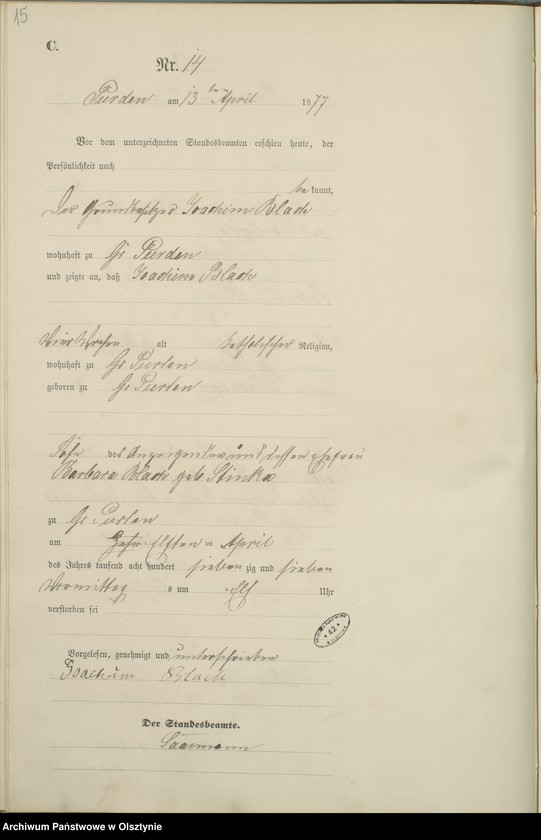 15
C.
Nr. 14
Purden am 13 ten April 1877
Vor dem unterzeichneten Standesbeamten erschien heute, der
Persönlichkeit nach
be kannt,
Der Grundbesitzer Joachim Blach
wohnhaft zu Gr Purden
und zeigte an, daß Joachim Blach
Vier Wochen alt katholischer Religion,
wohnhaft zu Gr Purden
geboren zu Gr Purden
Sohn des Anzeigenden und dessen Ehefrau
Barbara Blach geb
zu Gr Purden
am Elften April
des Jahres tausend acht hundert sieben zig und sieben
Vormittag s um Elf Uhr
verstorben sei
Vorgelesen, genehmigt und unterschrieben
Joachim Blach
Der Standesbeamte.
42
Archiwum Państwowe w Olsztynie